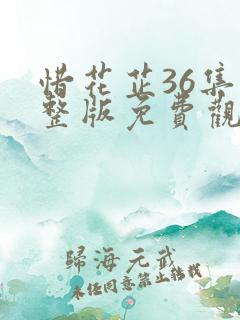 惜花芷36集
整版免費觀
歸海元武
未经同意禁止转载